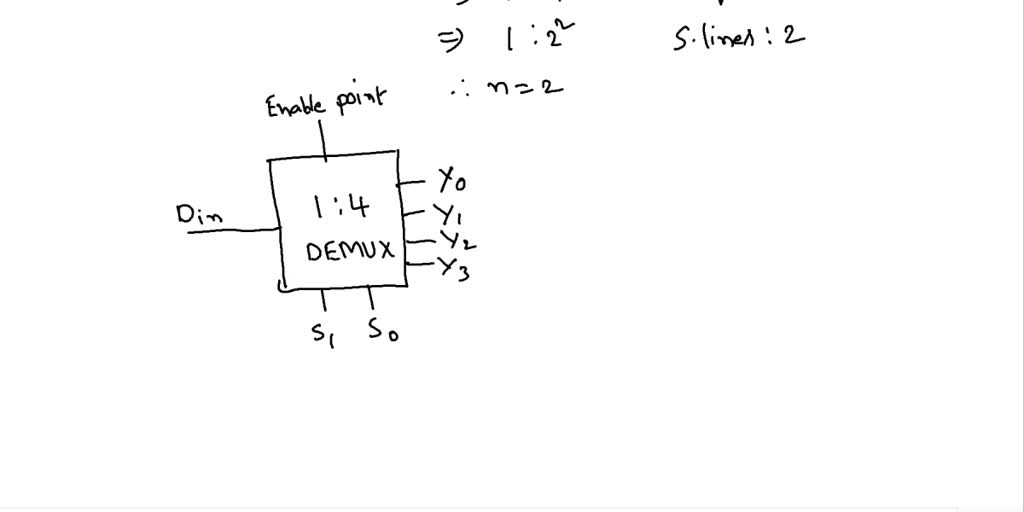 ⇒ 1 : 2² S. lines : 2
∴ n = 2
Enable point
Din
1 : 4
DEMUX
Y0
Y1
Y2
Y3
S1 S0